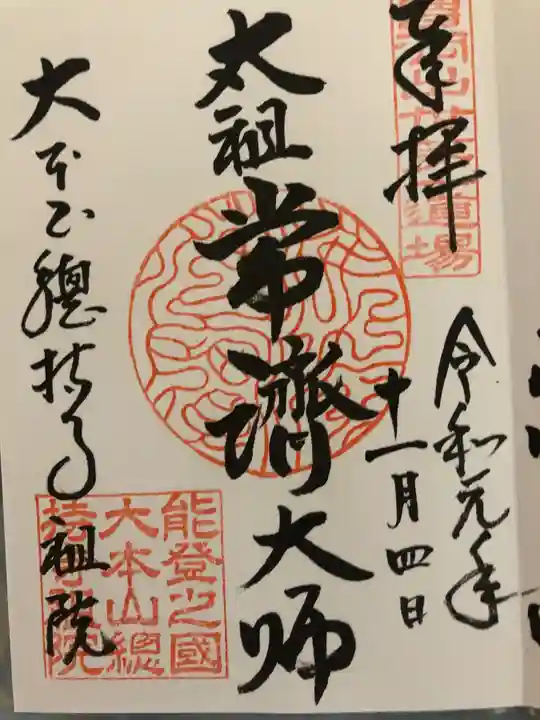 奉拝
令和元年
十一月四日
太祖常濟大師
大本山總持寺祖院
能登之國
大本山總
持寺祖院